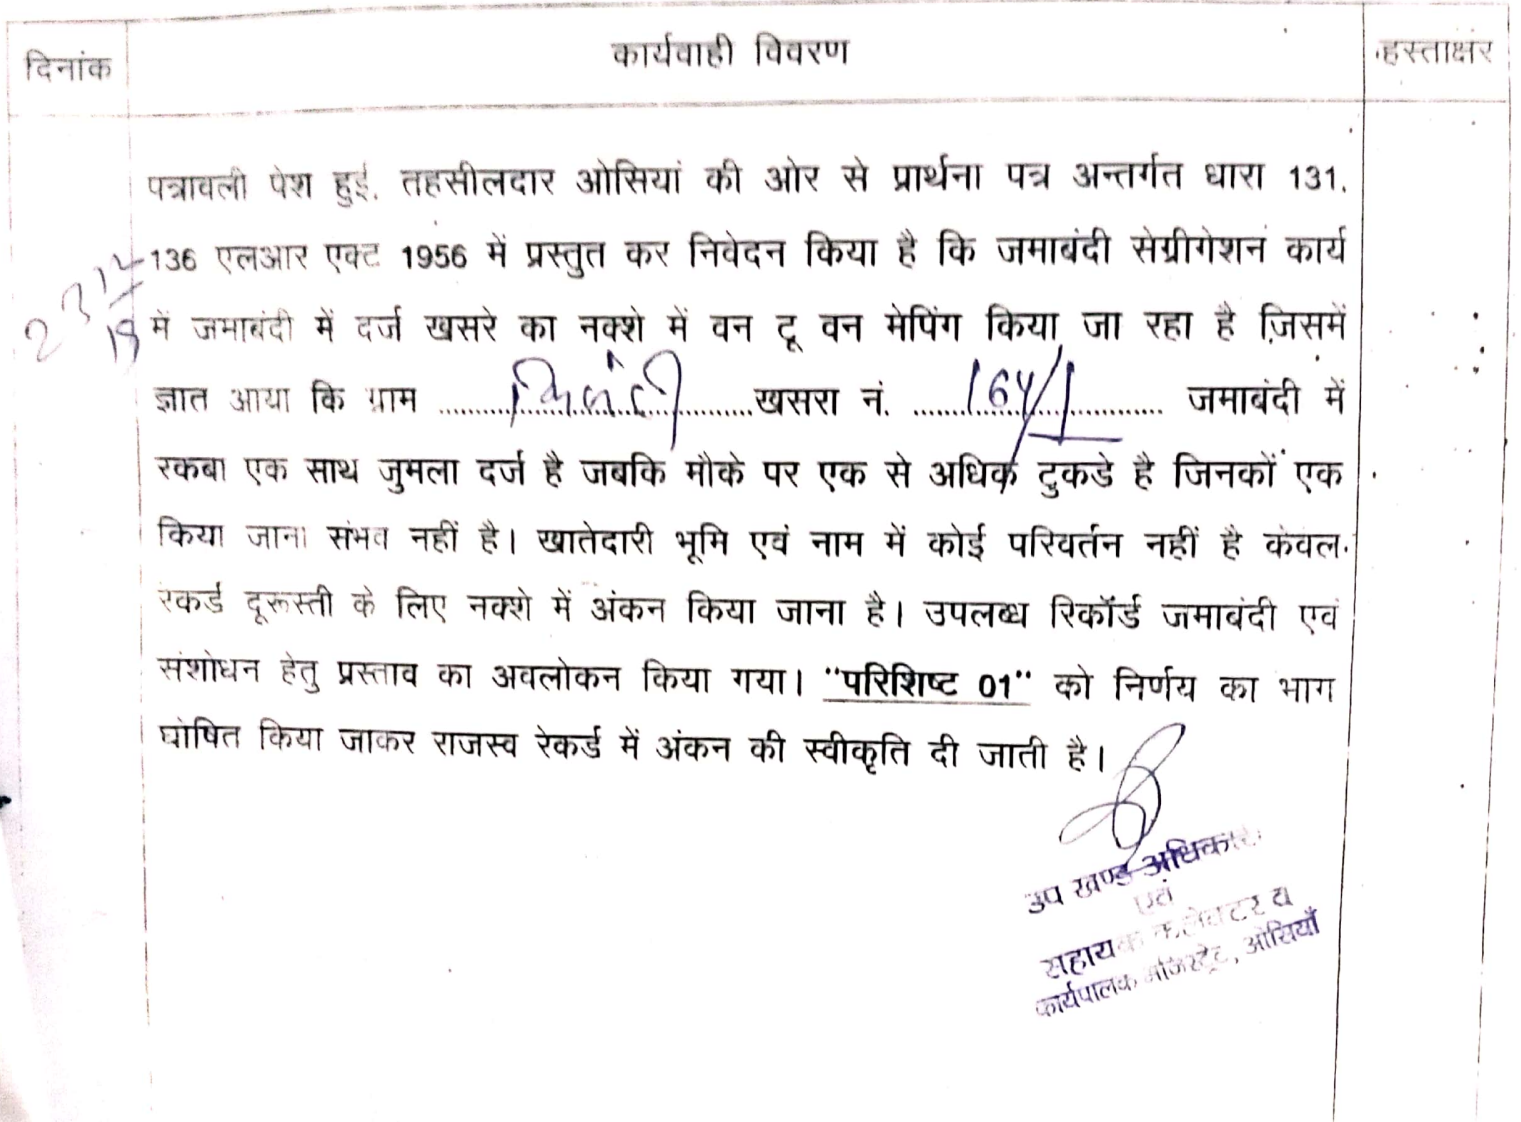 दिनांक
कार्यवाही विवरण
हस्ताक्षर
पत्रावली पेश हुई. तहसीलदार ओसियां की ओर से प्रार्थना पत्र अन्तर्गत धारा 131.
136 एलआर एक्ट 1956 में प्रस्तुत कर निवेदन किया है कि जमाबंदी सेग्रीगेशन कार्य
में जमाबंदी में दर्ज खसरे का नक्शे में वन टू वन मेपिंग किया जा रहा है जिसमें
ज्ञात आया कि ग्राम ........ खसरा नं. ........164/1........ जमाबंदी में
रकबा एक साथ जुमला दर्ज है जबकि मौके पर एक से अधिक टुकडे है जिनकों एक
किया जाना संभव नहीं है। खातेदारी भूमि एवं नाम में कोई परिवर्तन नहीं है केवल
रेकर्ड दूरूस्ती के लिए नक्शे में अंकन किया जाना है। उपलब्ध रिकॉर्ड जमाबंदी एवं
संशोधन हेतु प्रस्ताव का अवलोकन किया गया। "परिशिष्ट 01" को निर्णय का भाग
घोषित किया जाकर राजस्व रेकर्ड में अंकन की स्वीकृति दी जाती है।
उप खण्ड अधिकारी
एवं
सहायक कलेक्टर व
कार्यपालक मजिस्ट्रेट, ओसियाँ